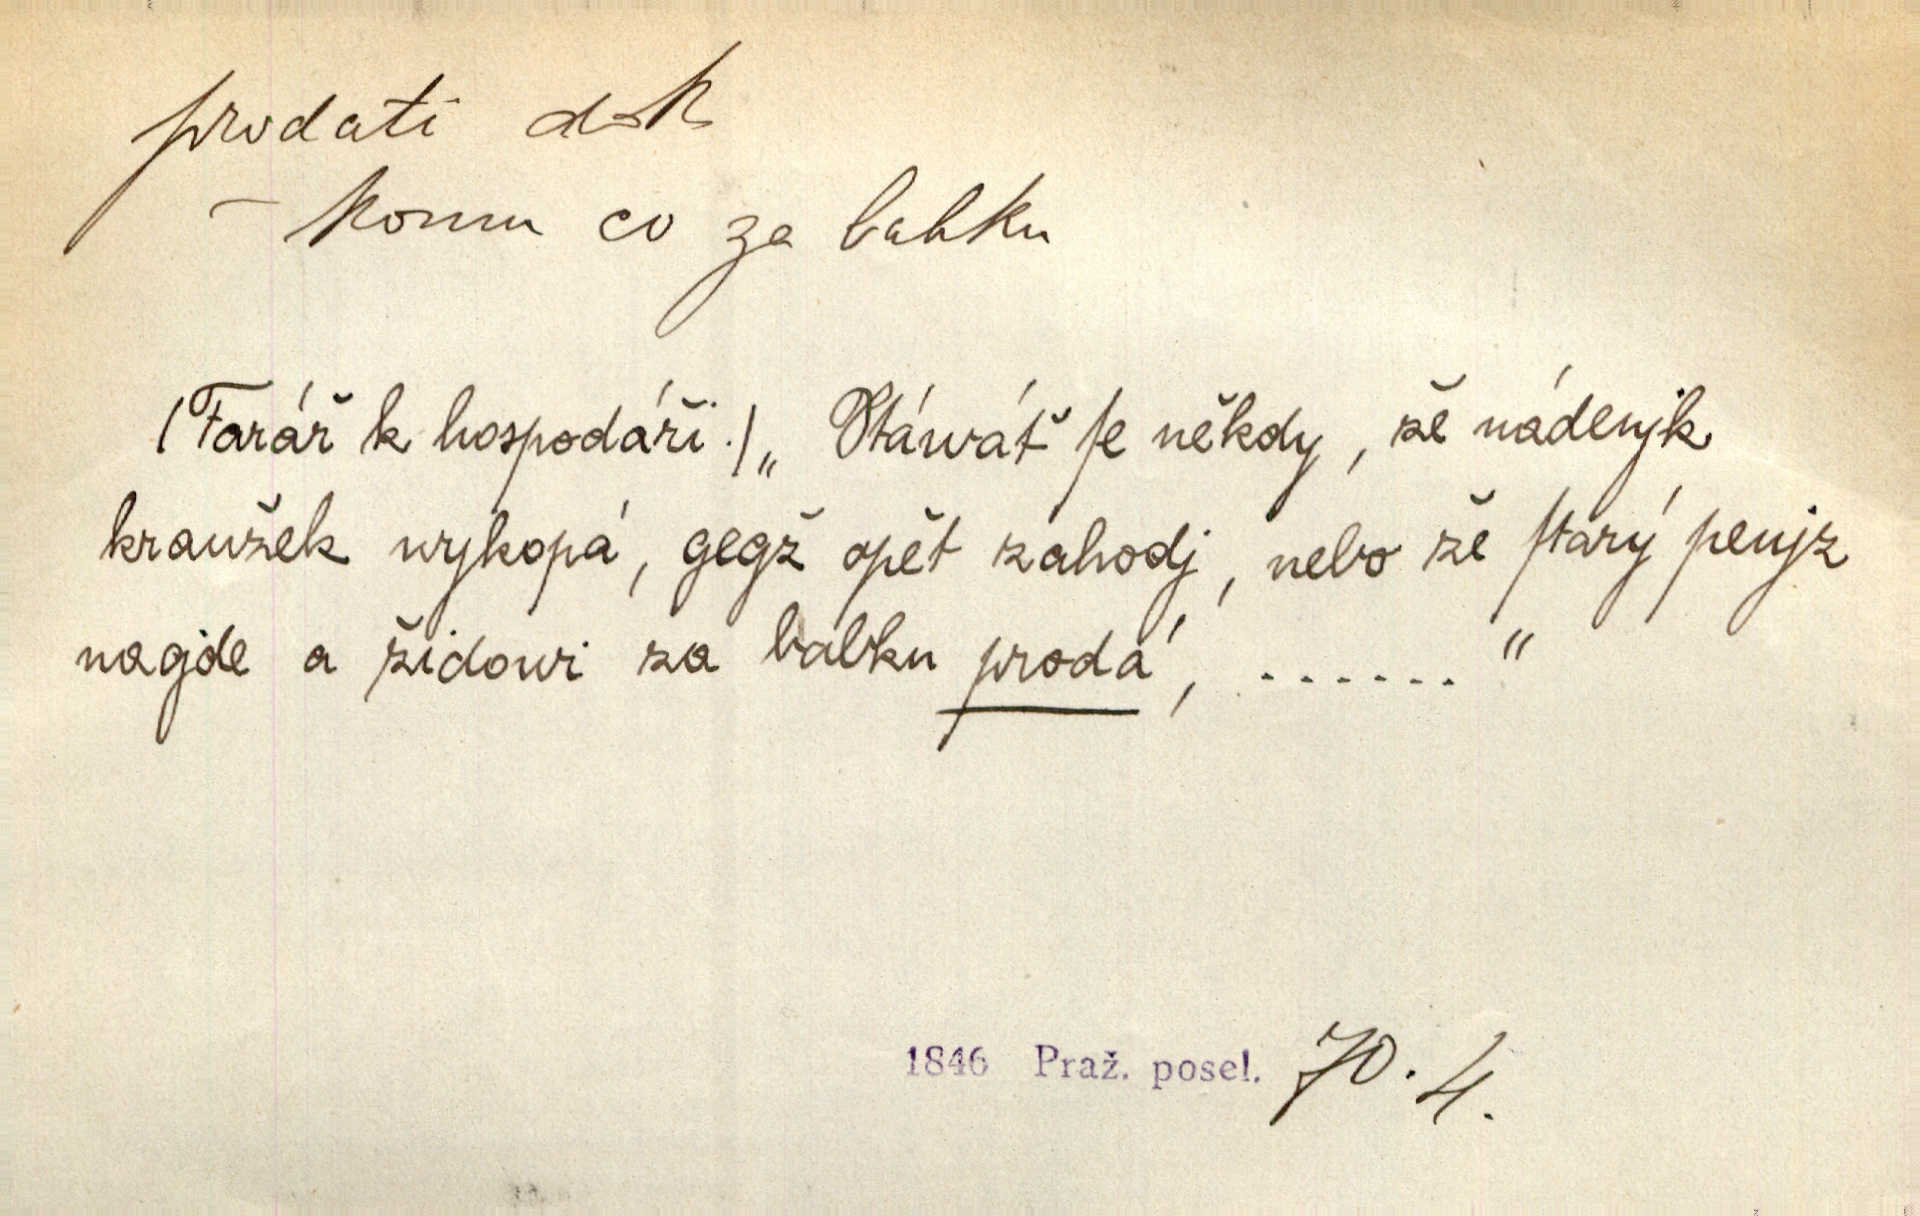 prodati dok
– komu co za babku
(Farář k hospodáři.) „Stáwáť ſe někdy, že nádenjk
kraužek wykopá, gegž opět zahodj, nebo že ſtarý penjz
nagde a židowi za babku prodá, ......“
1846 Praž. posel. 70. 4.